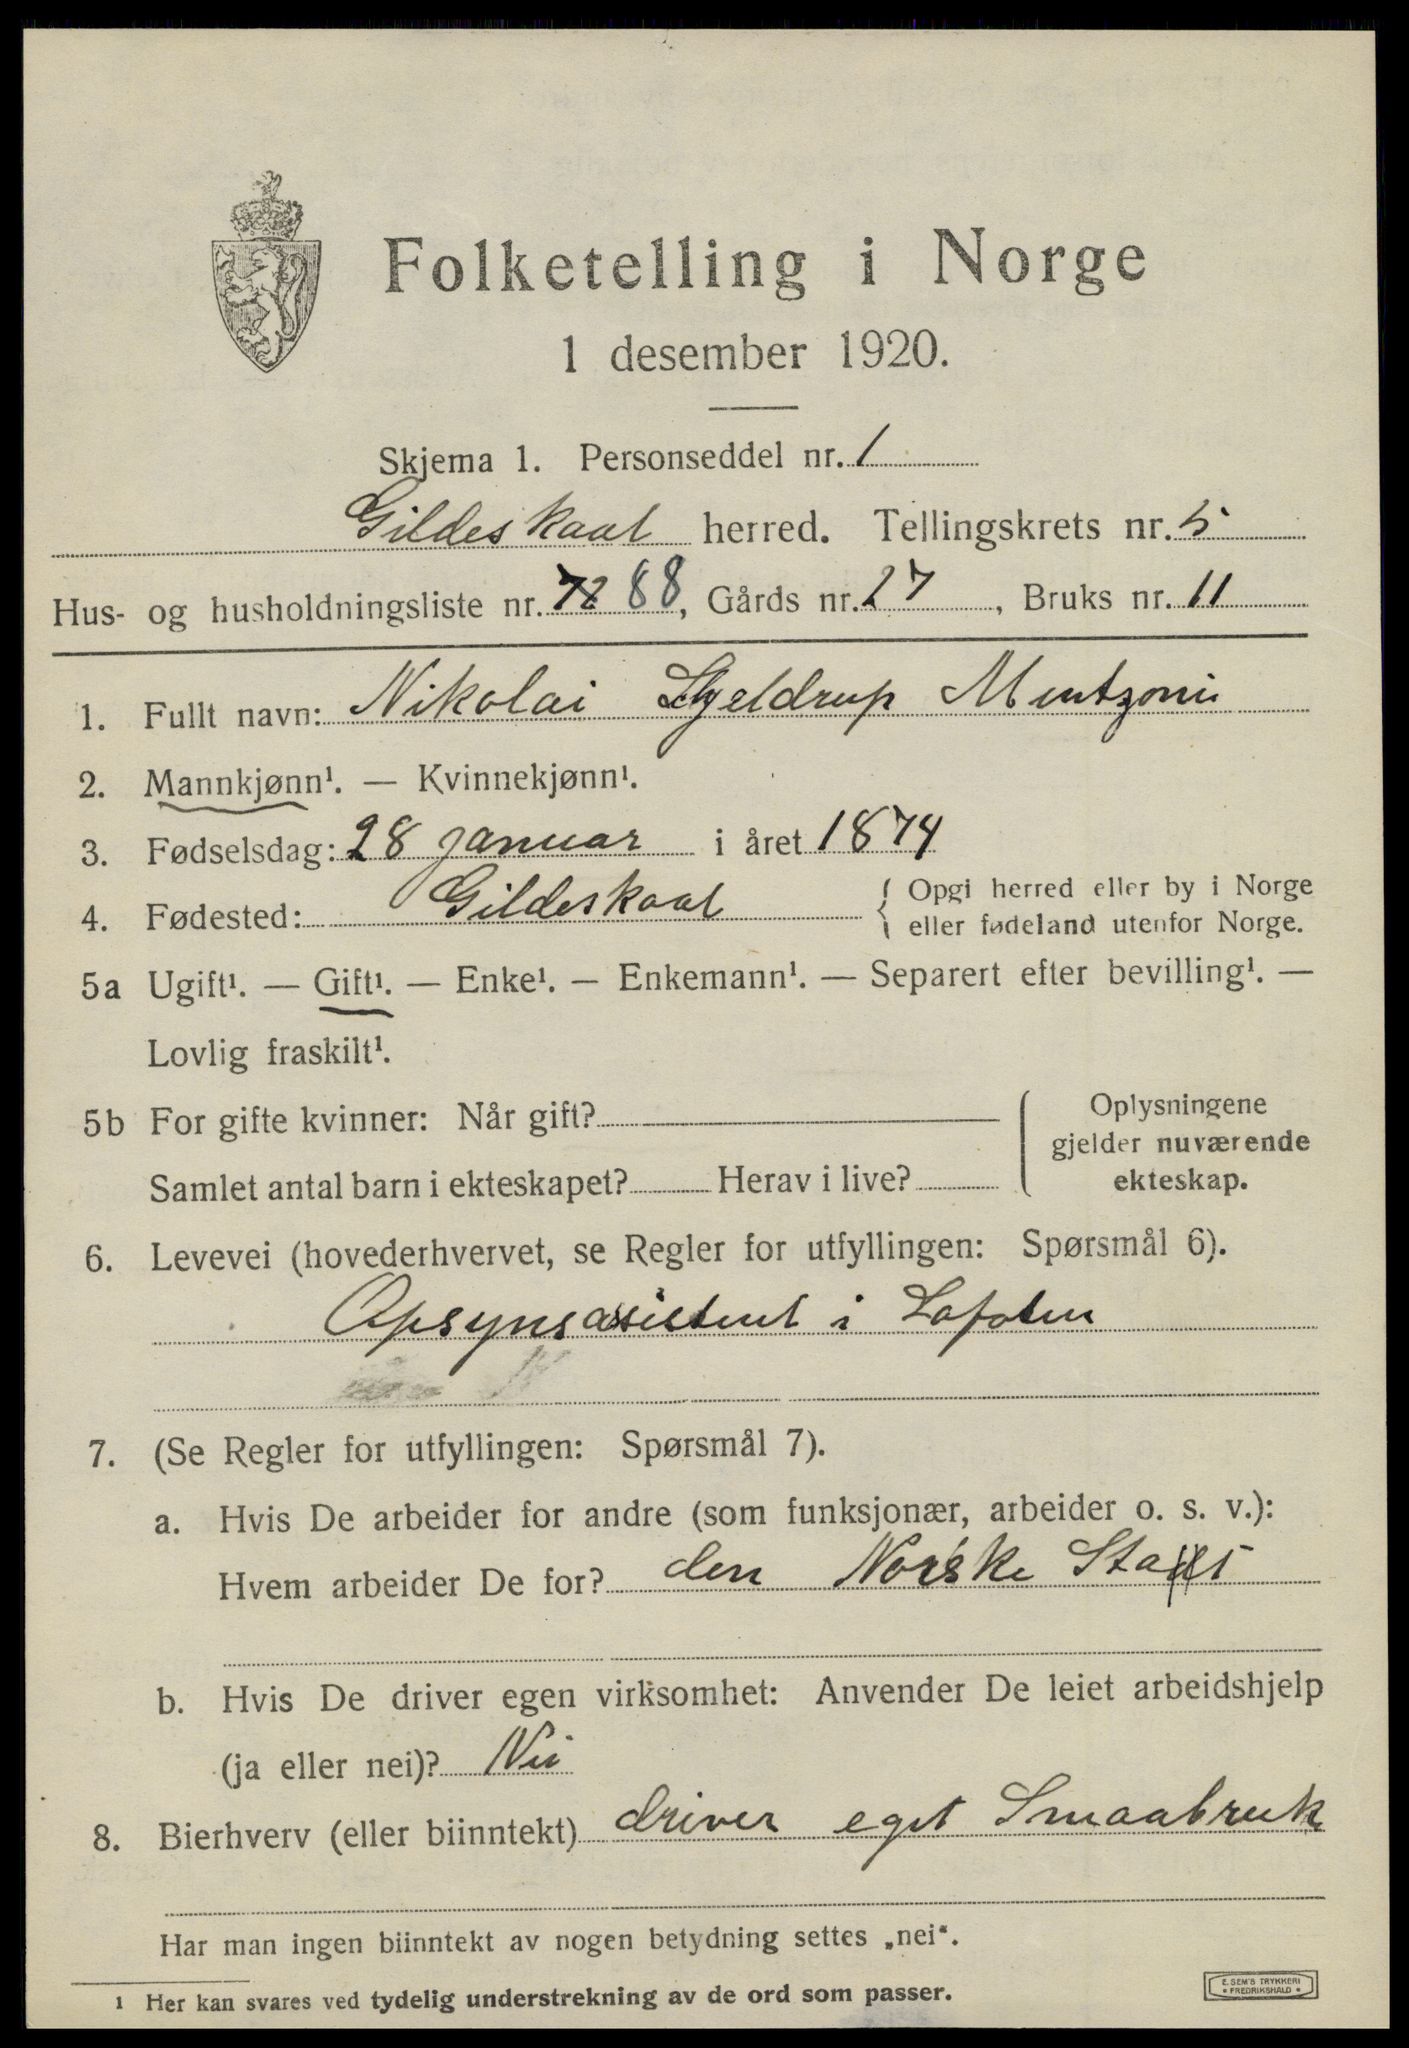 Folketelling i Norge
1 desember 1920.
Skjema 1. Personseddel nr. 1
Gildeskaal herred. Tellingskrets nr. 5
Hus- og husholdningsliste nr. 72 88, Gårds nr. 27, Bruks nr. 11
1. Fullt navn: Nikolai Gjeldrup Mentzonii
2. Mannkjønn¹. — Kvinnekjønn¹.
3. Fødselsdag: 28 januar i året 1874
4. Fødested: Gildeskaal { Opgi herred eller by i Norge
eller fødeland utenfor Norge.
5a Ugift¹. — Gift¹. — Enke¹. — Enkemann¹. — Separert efter bevilling¹. —
Lovlig fraskilt¹.
5b For gifte kvinner: Når gift?
Samlet antal barn i ekteskapet? Herav i live?
Oplysningene
gjelder nuværende
ekteskap.
6. Levevei (hovederhvervet, se Regler for utfyllingen: Spørsmål 6).
Opsynsasistent i Lofoten
7. (Se Regler for utfyllingen: Spørsmål 7).
a. Hvis De arbeider for andre (som funksjonær, arbeider o. s. v.):
Hvem arbeider De for? den Norske Stat
b. Hvis De driver egen virksomhet: Anvender De leiet arbeidshjelp
(ja eller nei)? Nei
8. Bierhverv (eller biinntekt) driver eget Smaabruk
Har man ingen biinntekt av nogen betydning settes „nei“.
1 Her kan svares ved tydelig understrekning av de ord som passer.
E. SEM'S TRYKKERI
• FREDRIKSHALD •